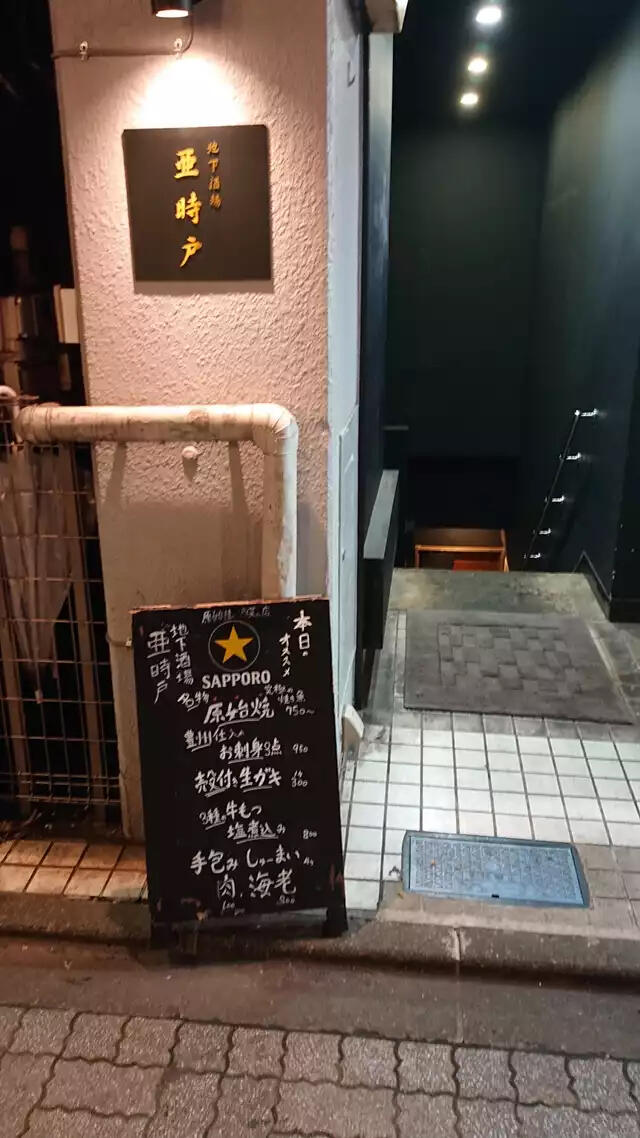 地下酒場
亜時戸
本日の
オススメ
地下酒場
亜時戸
SAPPORO
名物
原始焼
究極の
焼き魚
750〜
豊州仕入れ
お刺身3点 950
殻付き生ガキ 1ヶ 300
3種の牛もつ
塩煮込み 800
手包みしゅーまい
肉、海老